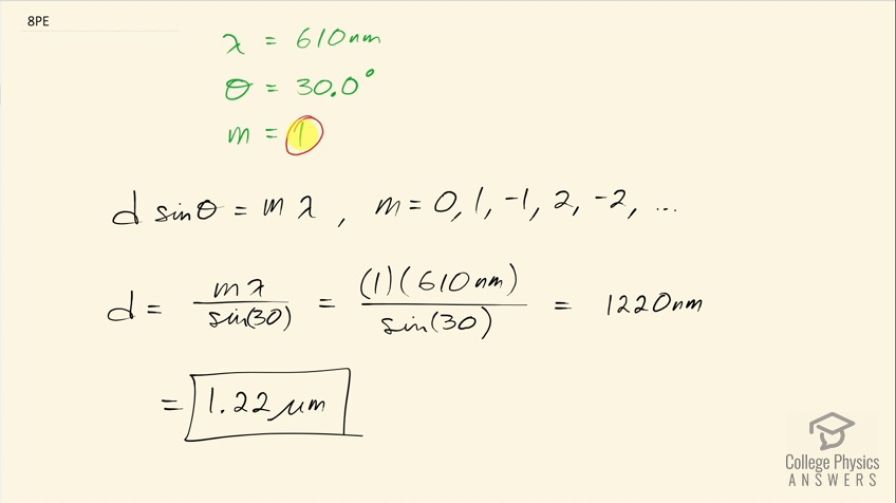 8PE
λ = 610nm
θ = 30.0°
m = 1
d sinθ = m λ , m = 0, 1, -1, 2, -2, ...
d = mλ / sin(30) = (1)(610nm) / sin(30) = 1220nm
= 1.22 μm
College Physics
ANSWERS